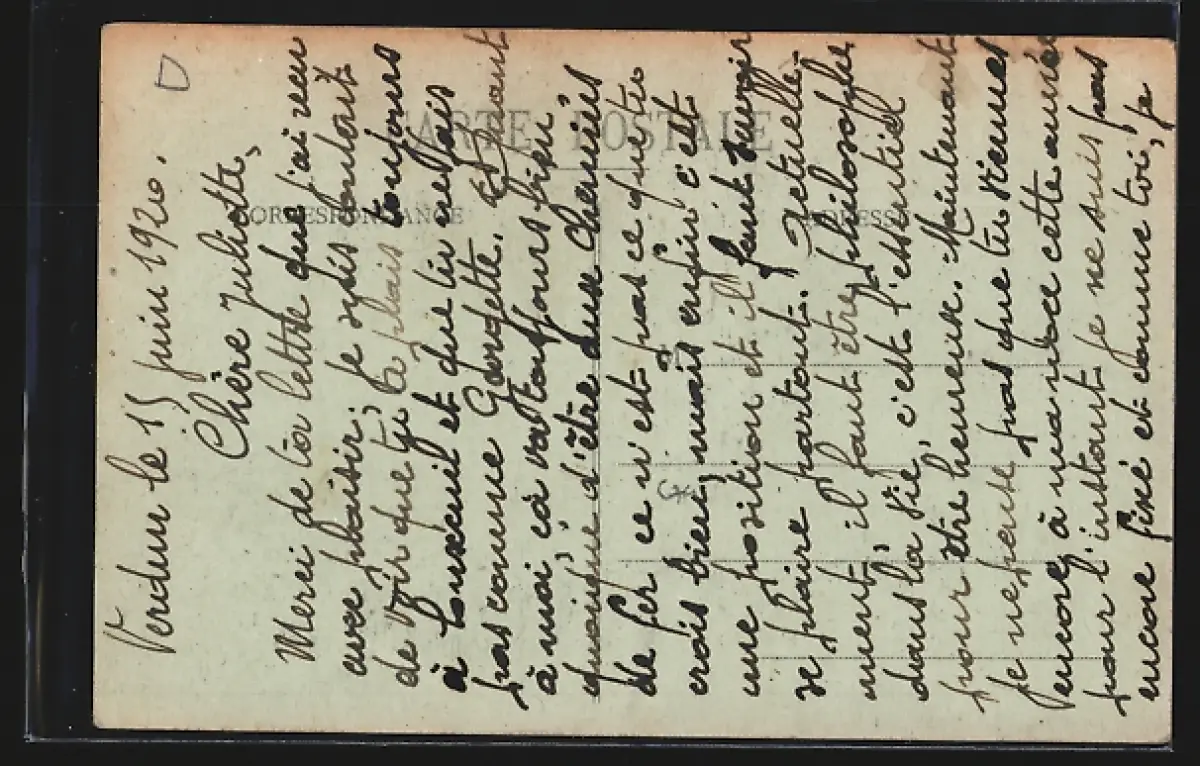 D
CARTE POSTALE
CORRESPONDANCE
ADRESSE
Verdun le 15 juin 1920.
Chère Juliette,
Merci de ta lettre que j'ai reçu
avec plaisir; je suis content
de voir que tu te plais toujours
à et que tu ne fais
pas comme Georgette. Quant
à moi, ça va toujours bien
quoique d'être aux Chemins
de fer ce n'est pas ce que tu
crois bien, mais enfin c'est
une position et il faut savoir
se plaire partout. Actuelle-
ment, il faut être philosophe
dans la vie, c'est l'essentiel
pour être heureux. Maintenant
je ne pense pas que tu viennes
encore à ma noce cette année
pour l'instant je ne suis pas
encore fixé et comme toi, je